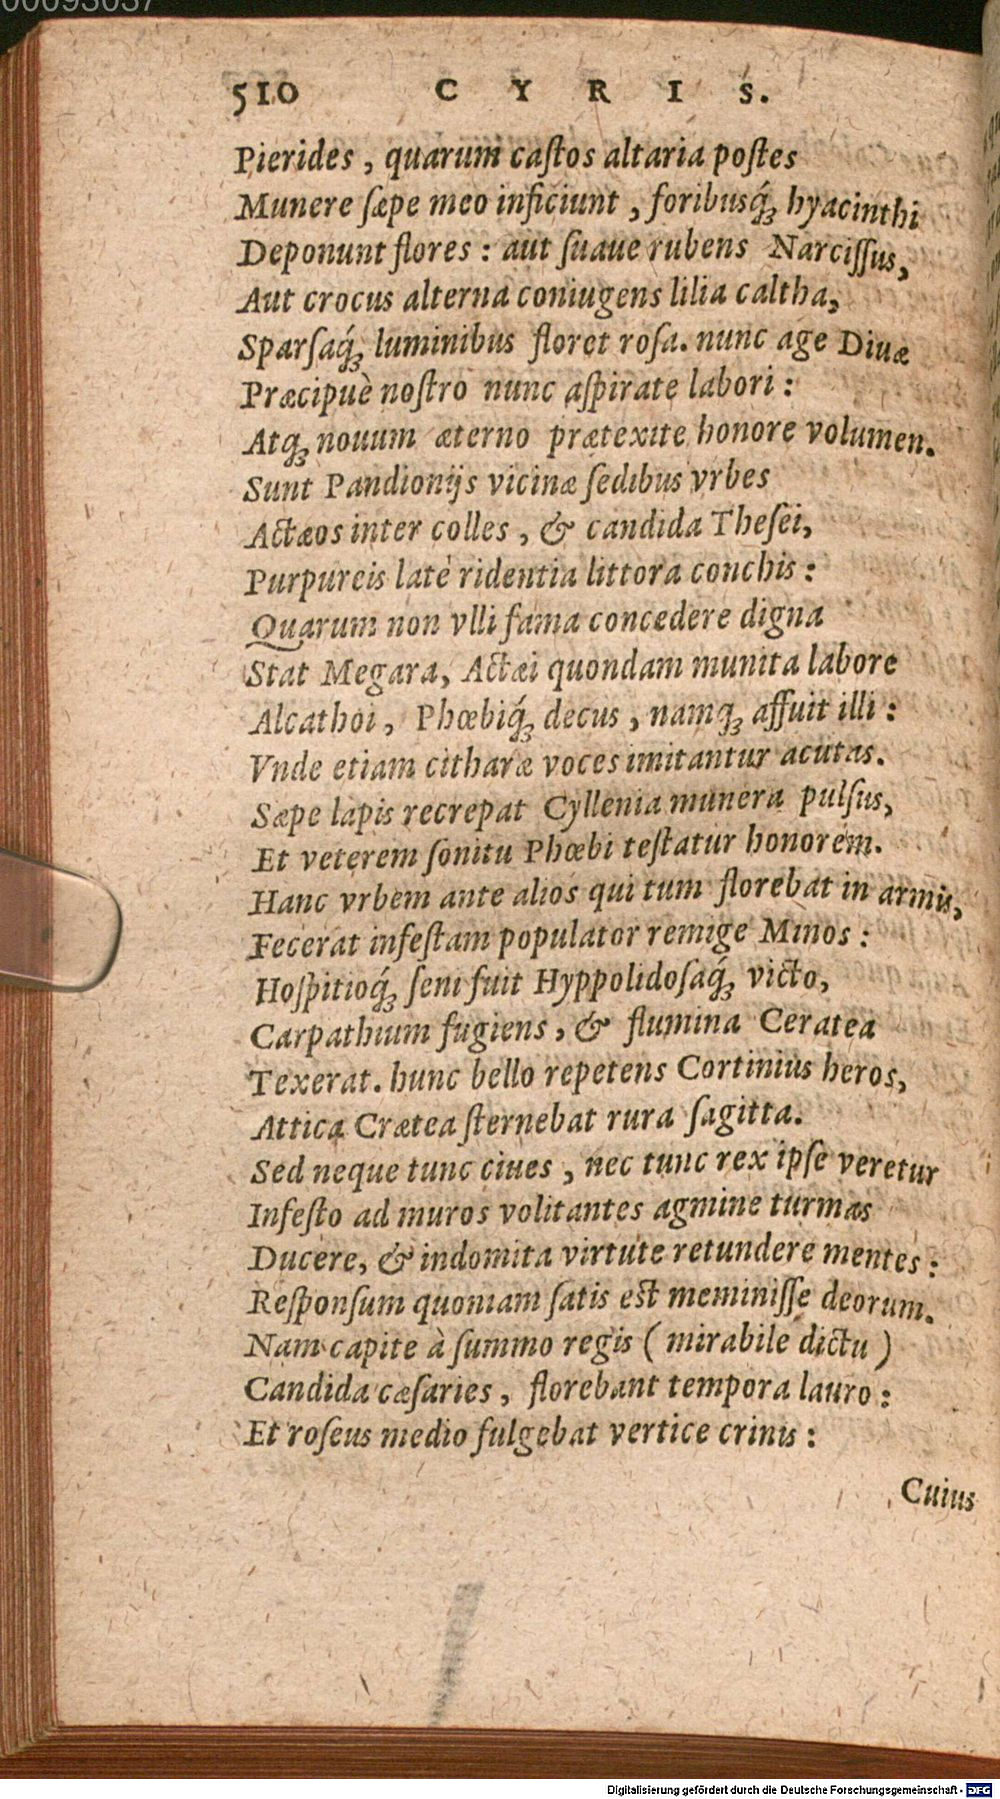 00093037
510 CYRIS.
Pierides, quarum caſtos altaria poſtes
Munere ſæpe meo inficiunt, foribusq́ꝫ hyacinthi
Deponunt flores: aut ſuaue rubens Narciſſus,
Aut crocus alterna coniugens lilia caltha,
Sparſaq́ꝫ luminibus floret roſa. nunc age Diuæ
Præcipuè noſtro nunc aſpirate labori:
Atqꝫ nouum æterno prætexite honore volumen.
Sunt Pandionijs vicinæ ſedibus vrbes
Actæos inter colles, & candida Theſei,
Purpureis latè ridentia littora conchis:
Quarum non vlli fama concedere digna
Stat Megara, Actæi quondam munita labore
Alcathoi, Phœbiq́ꝫ decus, namqꝫ affuit illi:
Vnde etiam citharæ voces imitantur acutas.
Sæpe lapis recrepat Cyllenia munera pulſus,
Et veterem ſonitu Phœbi teſtatur honorem.
Hanc vrbem ante alios qui tum florebat in armis,
Fecerat infeſtam populator remige Minos:
Hoſpitioq́ꝫ ſeni fuit Hyppolidoſaq́ꝫ victo,
Carpathium fugiens, & flumina Ceratea
Texerat. hunc bello repetens Cortinius heros,
Attica Crætea ſternebat rura ſagitta.
Sed neque tunc ciues, nec tunc rex ipſe veretur
Infeſto ad muros volitantes agmine turmas
Ducere, & indomita virtute retundere mentes:
Reſponſum quoniam ſatis eſt meminiſſe deorum.
Nam capite à ſummo regis (mirabile dictu)
Candida cæſaries, florebant tempora lauro:
Et roſeus medio fulgebat vertice crinis:
Cuius
Digitalisierung gefördert durch die Deutsche Forschungsgemeinschaft - DFG